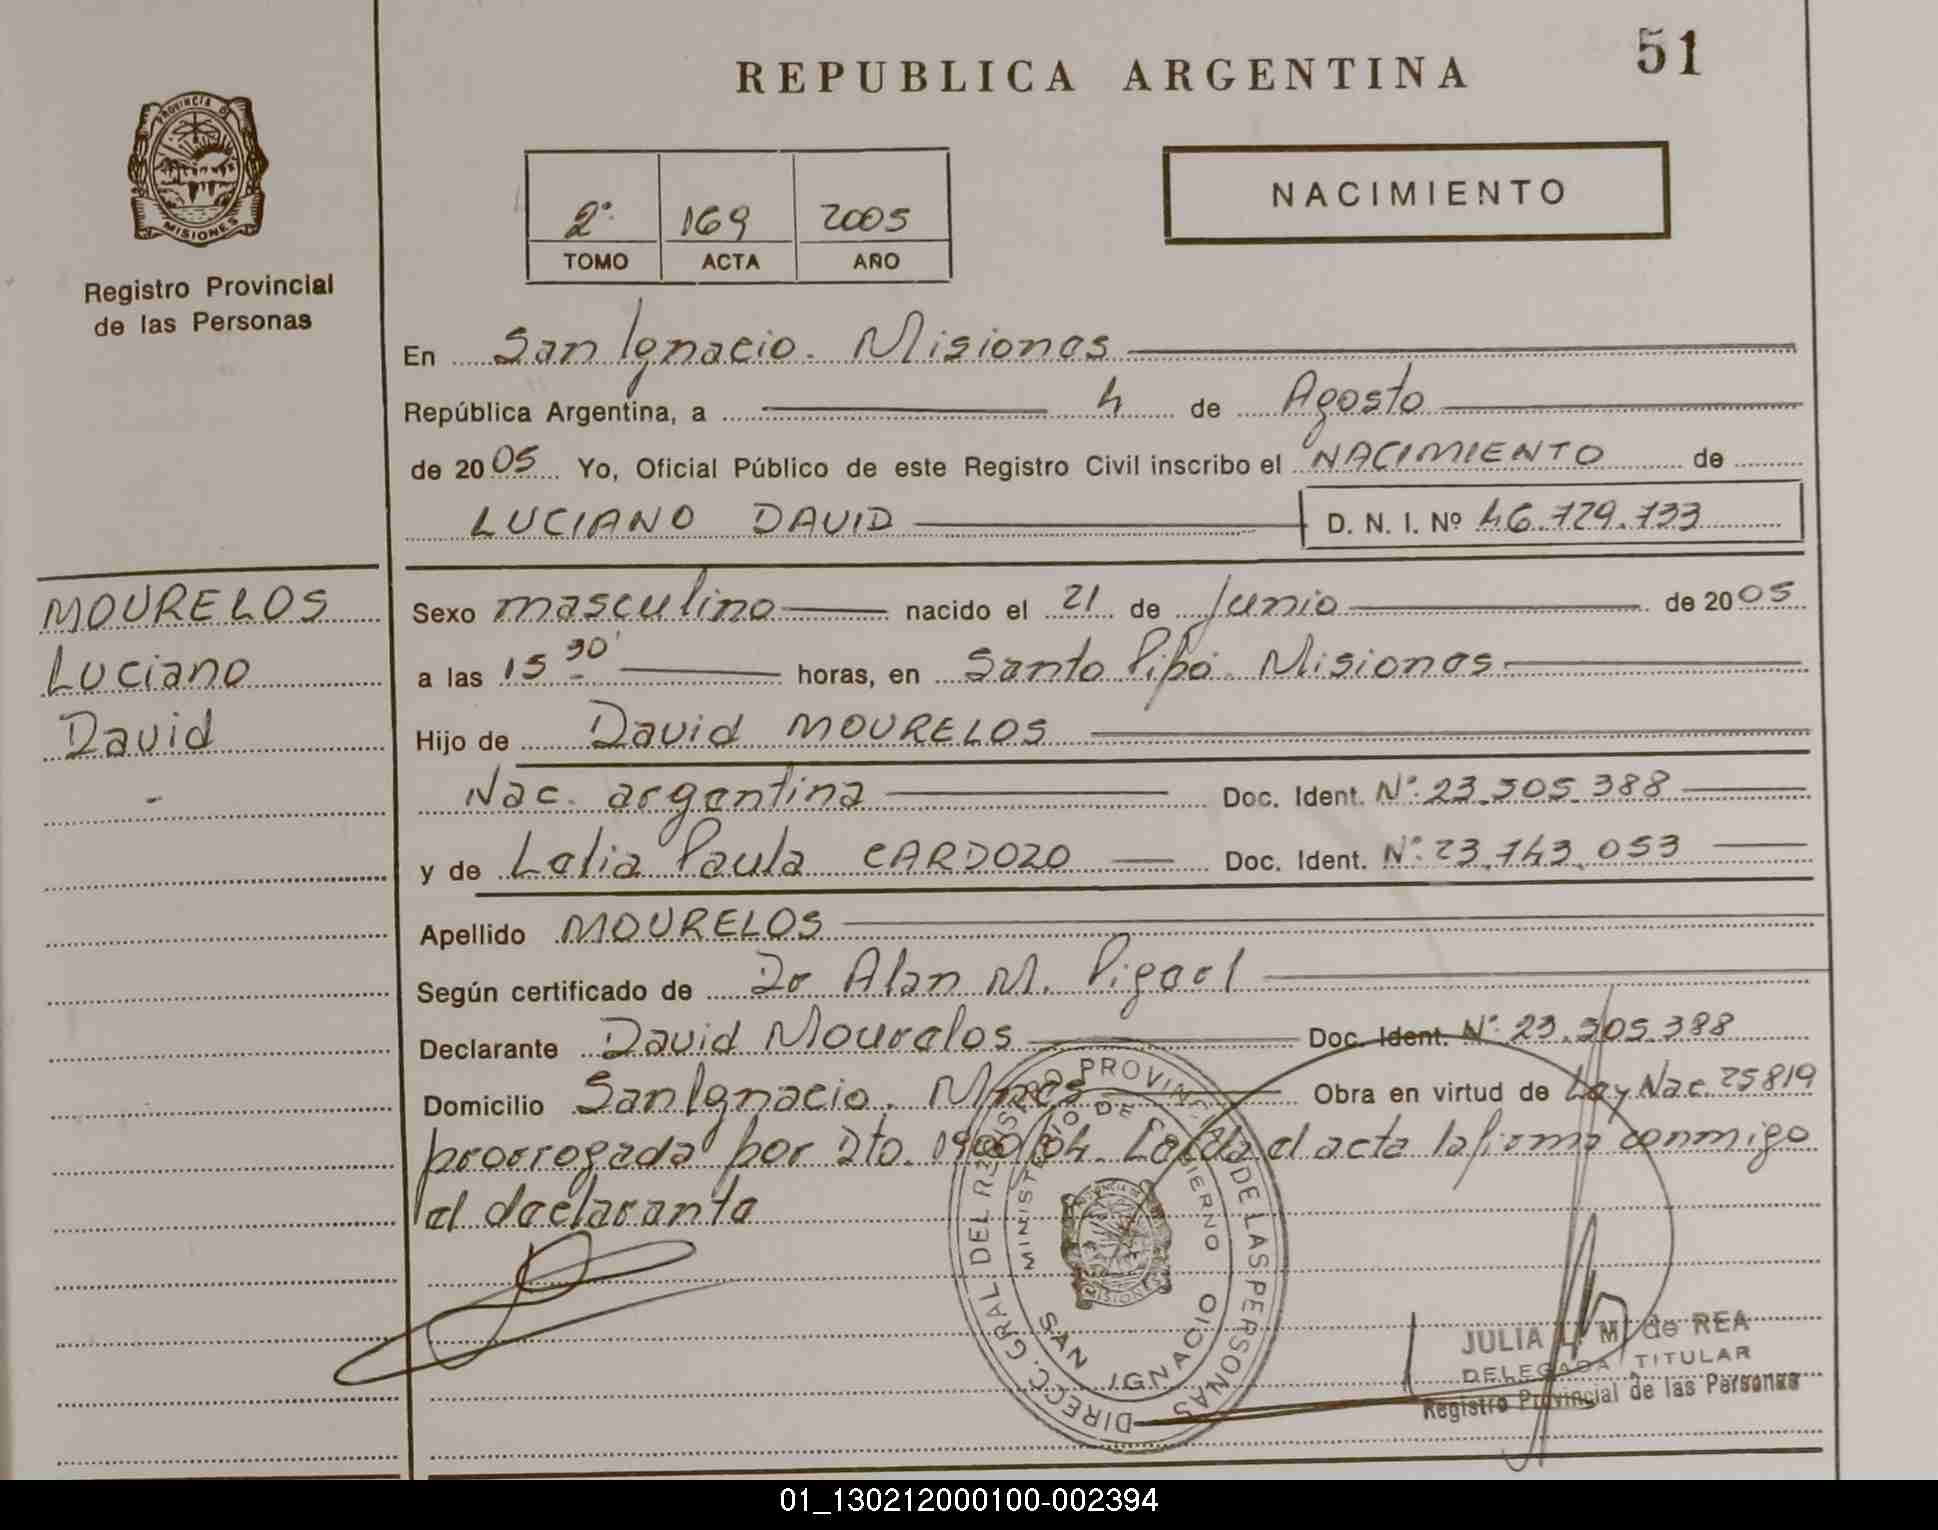 51
REPUBLICA ARGENTINA
PROVINCIA DE
MISIONES
Registro Provincial
de las Personas
2º 169 2005
TOMO ACTA AÑO
NACIMIENTO
En San Ignacio. Misiones
República Argentina, a 4 de Agosto
de 2005 Yo, Oficial Público de este Registro Civil inscribo el NACIMIENTO de
LUCIANO DAVID D. N. I. Nº 46.729.733
MOURELOS
Luciano
David
Sexo masculino nacido el 21 de Junio de 2005
a las 15 30' horas, en Santo Pipó. Misiones
Hijo de David MOURELOS
Nac. argentina Doc. Ident. Nº 23.505.388
y de Lelia Paula CARDOZO Doc. Ident. Nº 23.743.053
Apellido MOURELOS
Según certificado de Dr Alan M.
Declarante David Mourelos Doc. Ident. Nº 23.505.388
Domicilio San Ignacio. Mnes Obra en virtud de Ley Nac. 25819
prorrogada por Dto. 1900/04. Leída el acta la firma conmigo
el declarante
DIRECC. GRAL DEL REGISTRO PROVINCIAL DE LAS PERSONAS
MINISTERIO DE GOBIERNO
SAN IGNACIO
MISIONES
JULIA L. M. de REA
DELEGADA TITULAR
Registro Provincial de las Personas
01_130212000100-002394